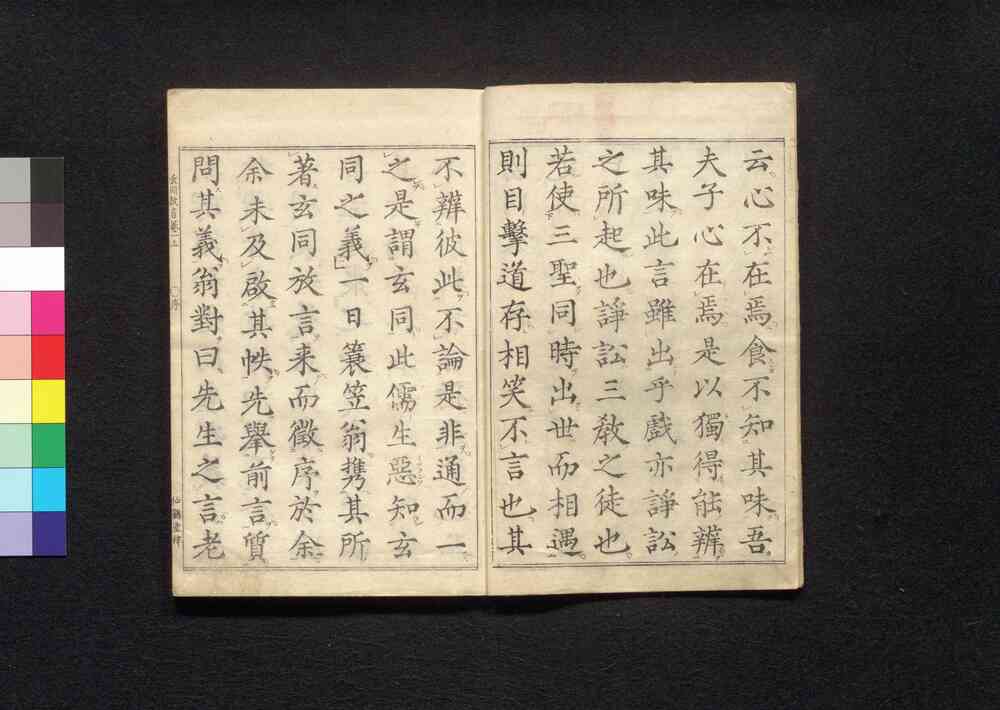 云心不在焉食不知其味吾
夫子心在焉是以獨得能辨
其味此言雖出乎戲亦諍訟
之所起也諍訟三教之徒也
若使三聖同時出世而相遇
則目擊道存相笑不言也其
不辨彼此不論是非通而一
之是謂玄同此儒生惡知玄
同之義一日簑笠翁携其所
著玄同放言来而徵序於余
余未及啟其帙先舉前言質
問其義翁對曰先生之言老